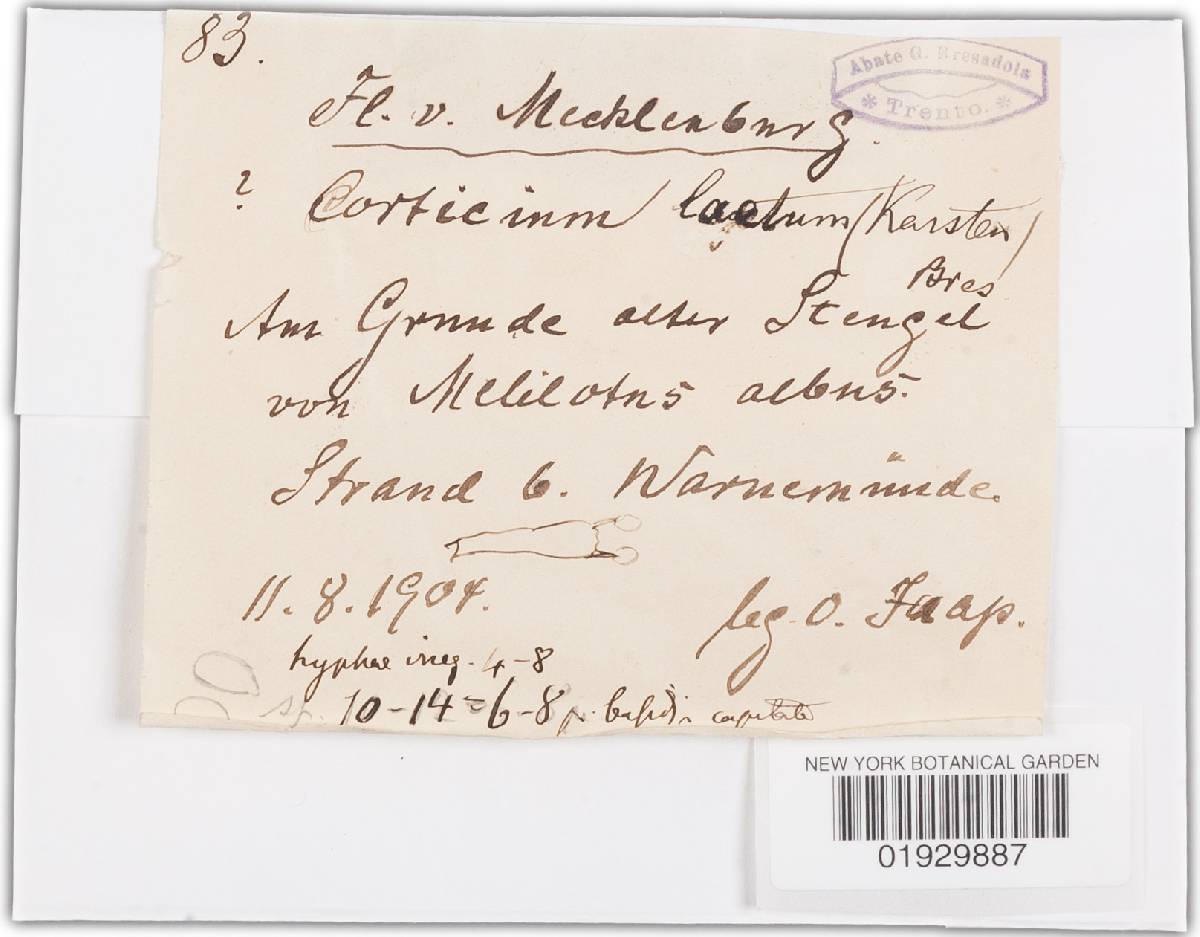 83.
Abate G. Bresadola
* Trento. *
Fl. v. Mecklenburg.
? Corticium laetum (Karsten)
Bres
Am Grunde alter Stengel
von Melilotus albus.
Strand b. Warnemünde.
11. 8. 1904.
leg. O. Jaap.
hyphae irreg. 4-8
sp. 10-14=6-8 µ. basidia capitata
NEW YORK BOTANICAL GARDEN
01929887